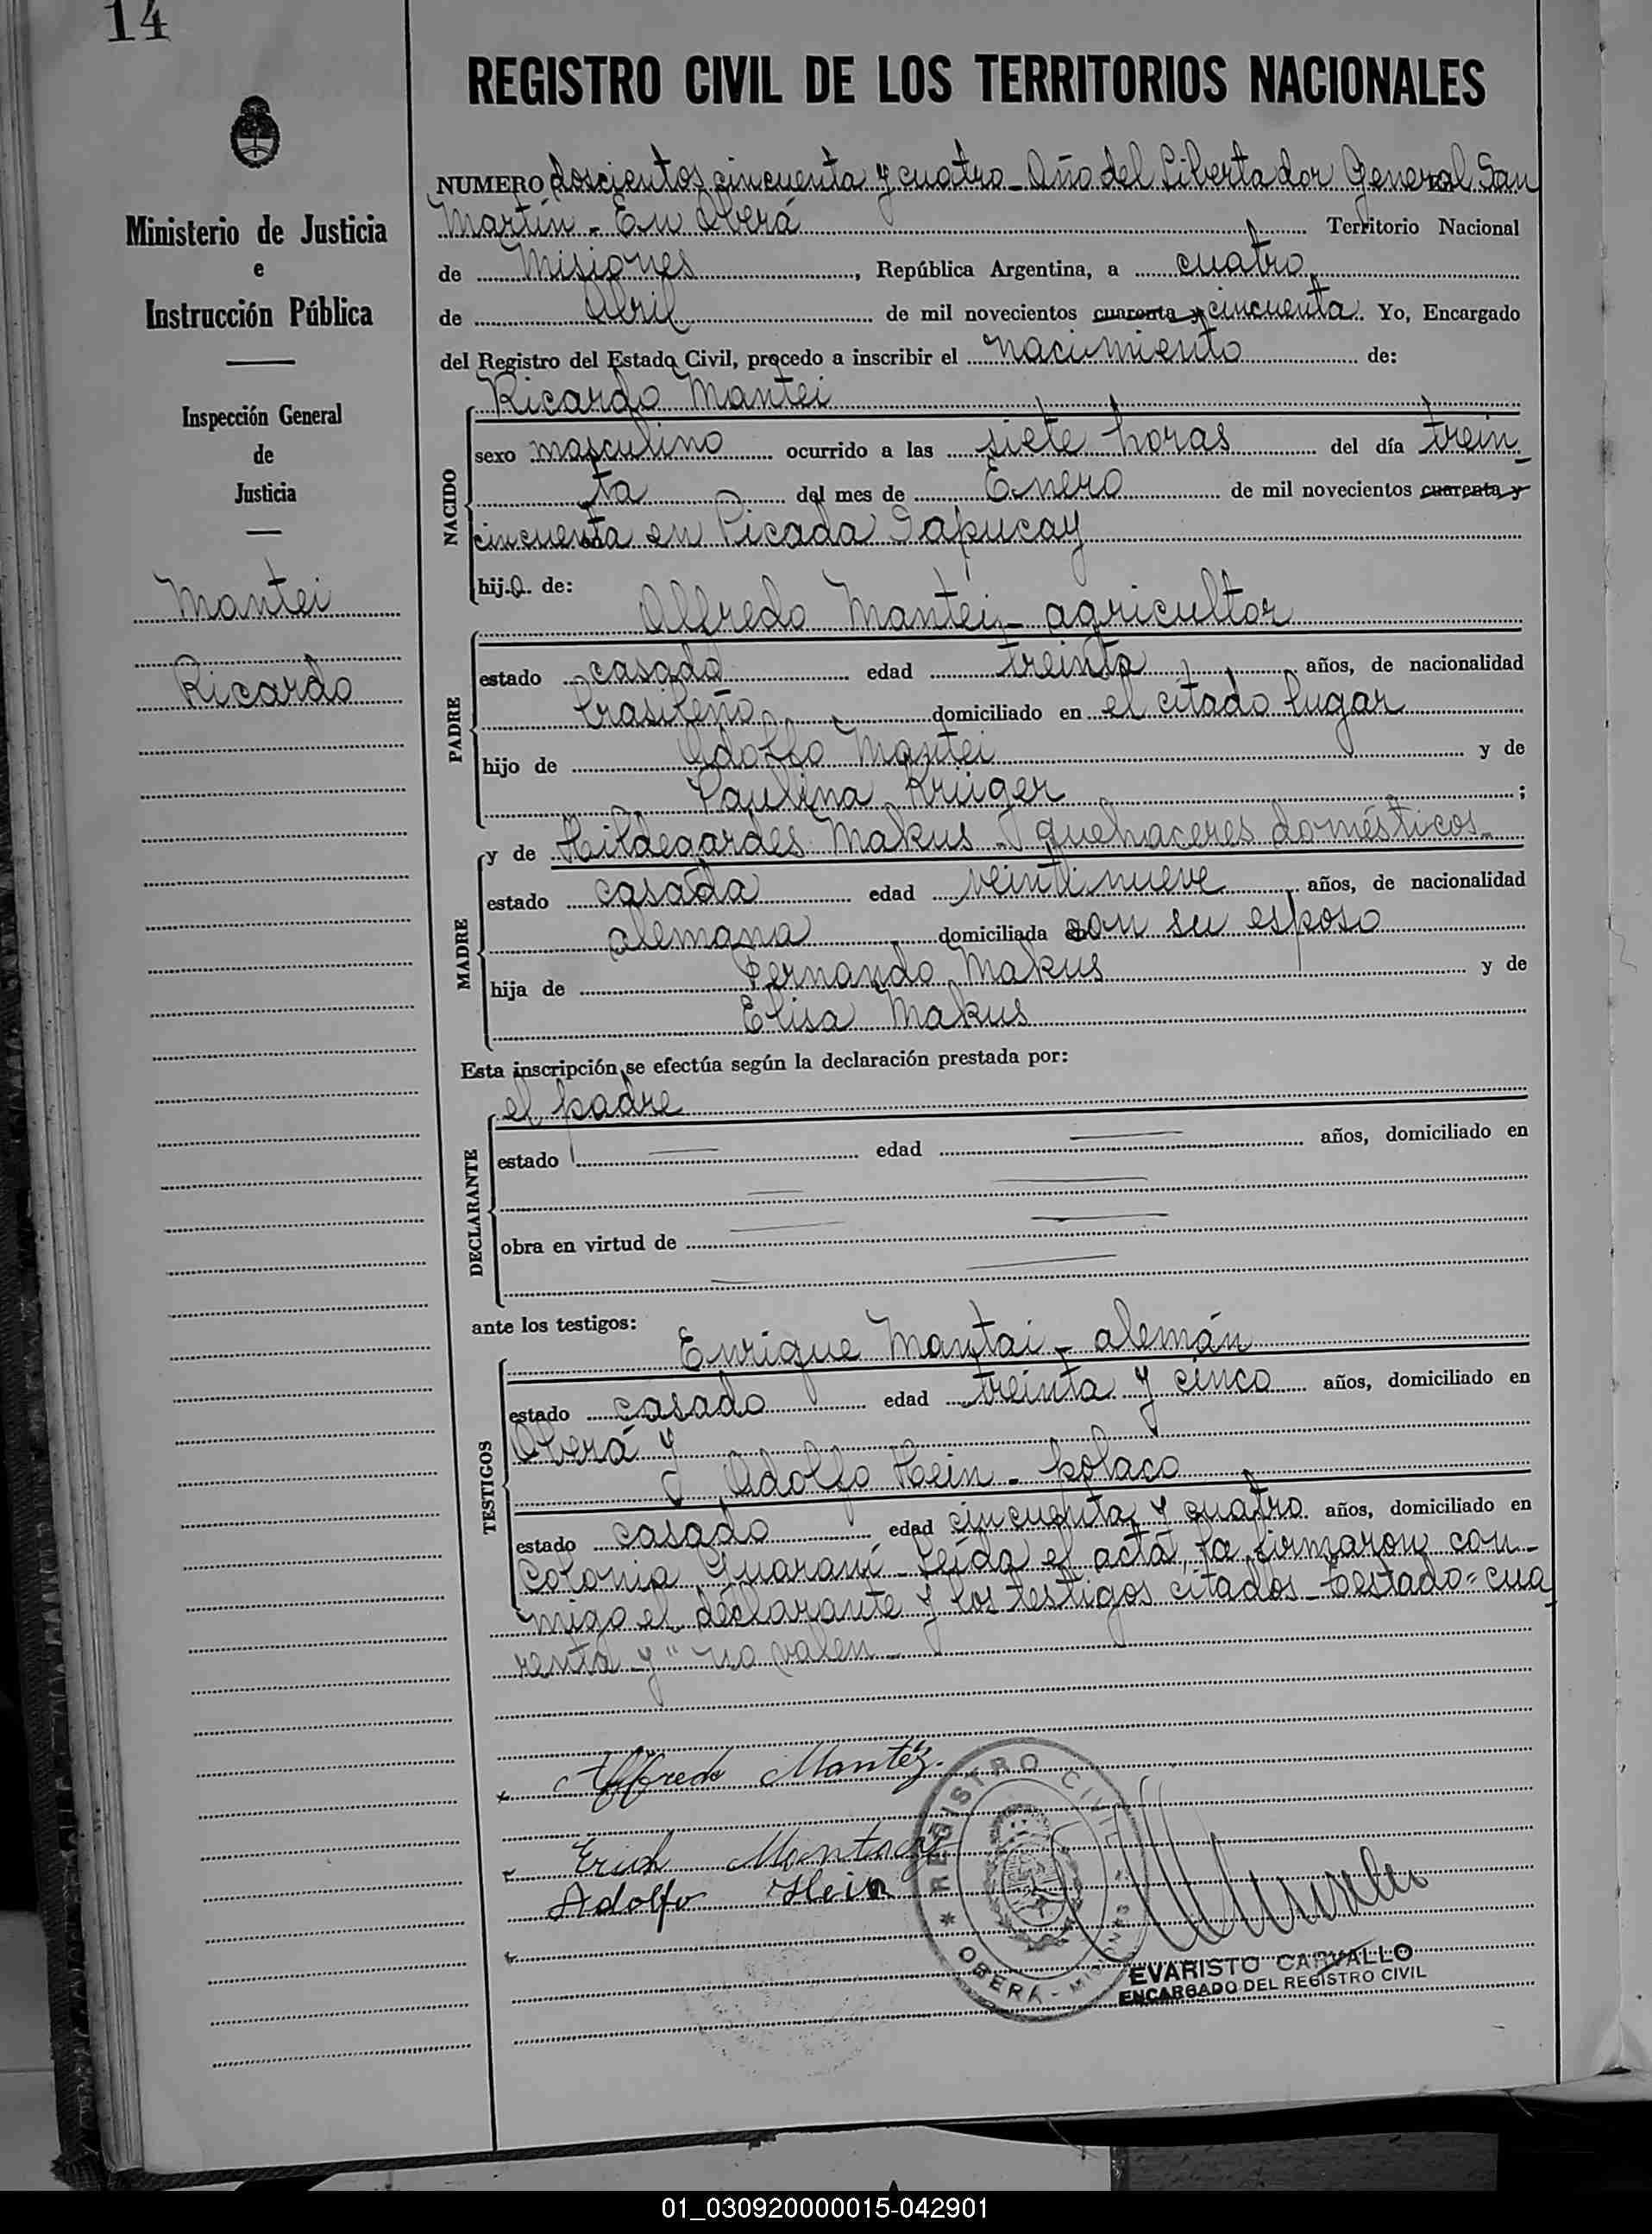 14
REGISTRO CIVIL DE LOS TERRITORIOS NACIONALES
Ministerio de Justicia
e
Instrucción Pública
Inspección General
de
Justicia
Mantei
Ricardo
NUMERO doscientos cincuenta y cuatro - Año del Libertador General San
Martín - En Oberá Territorio Nacional
de Misiones, República Argentina, a cuatro
de Abril de mil novecientos cuarenta y cincuenta. Yo, Encargado
del Registro del Estado Civil, procedo a inscribir el nacimiento de:
Ricardo Mantei
NACIDO
sexo masculino ocurrido a las siete horas del día trein_
ta del mes de Enero de mil novecientos cuarenta y
cincuenta en Picada Sapucay
hijo de:
Alfredo Mantei - agricultor
PADRE
estado casado edad treinta años, de nacionalidad
brasileño domiciliado en el citado lugar
hijo de Adolfo Mantei y de
Paulina Krüger ;
y de Hildegardes Makus - quehaceres domésticos -
MADRE
estado casada edad veintinueve años, de nacionalidad
alemana domiciliada con su esposo
hija de Fernando Makus y de
Elisa Makus
Esta inscripción se efectúa según la declaración prestada por:
el padre
DECLARANTE
estado edad años, domiciliado en
obra en virtud de
ante los testigos:
Enrique Mantai - alemán
TESTIGOS
estado casado edad treinta y cinco años, domiciliado en
Oberá y
Adolfo Hein - polaco
estado casado edad cincuenta y cuatro años, domiciliado en
Colonia Guaraní - Leída el acta, la firmaron con_
migo el declarante y los testigos citados - Testado "cua_
renta y" no valen -
Alfredo Mantei
Erich
Adolfo Hein
REGISTRO CIVIL
OBERÁ - MISIONES
EVARISTO CARVALLO
ENCARGADO DEL REGISTRO CIVIL
01_030920000015-042901